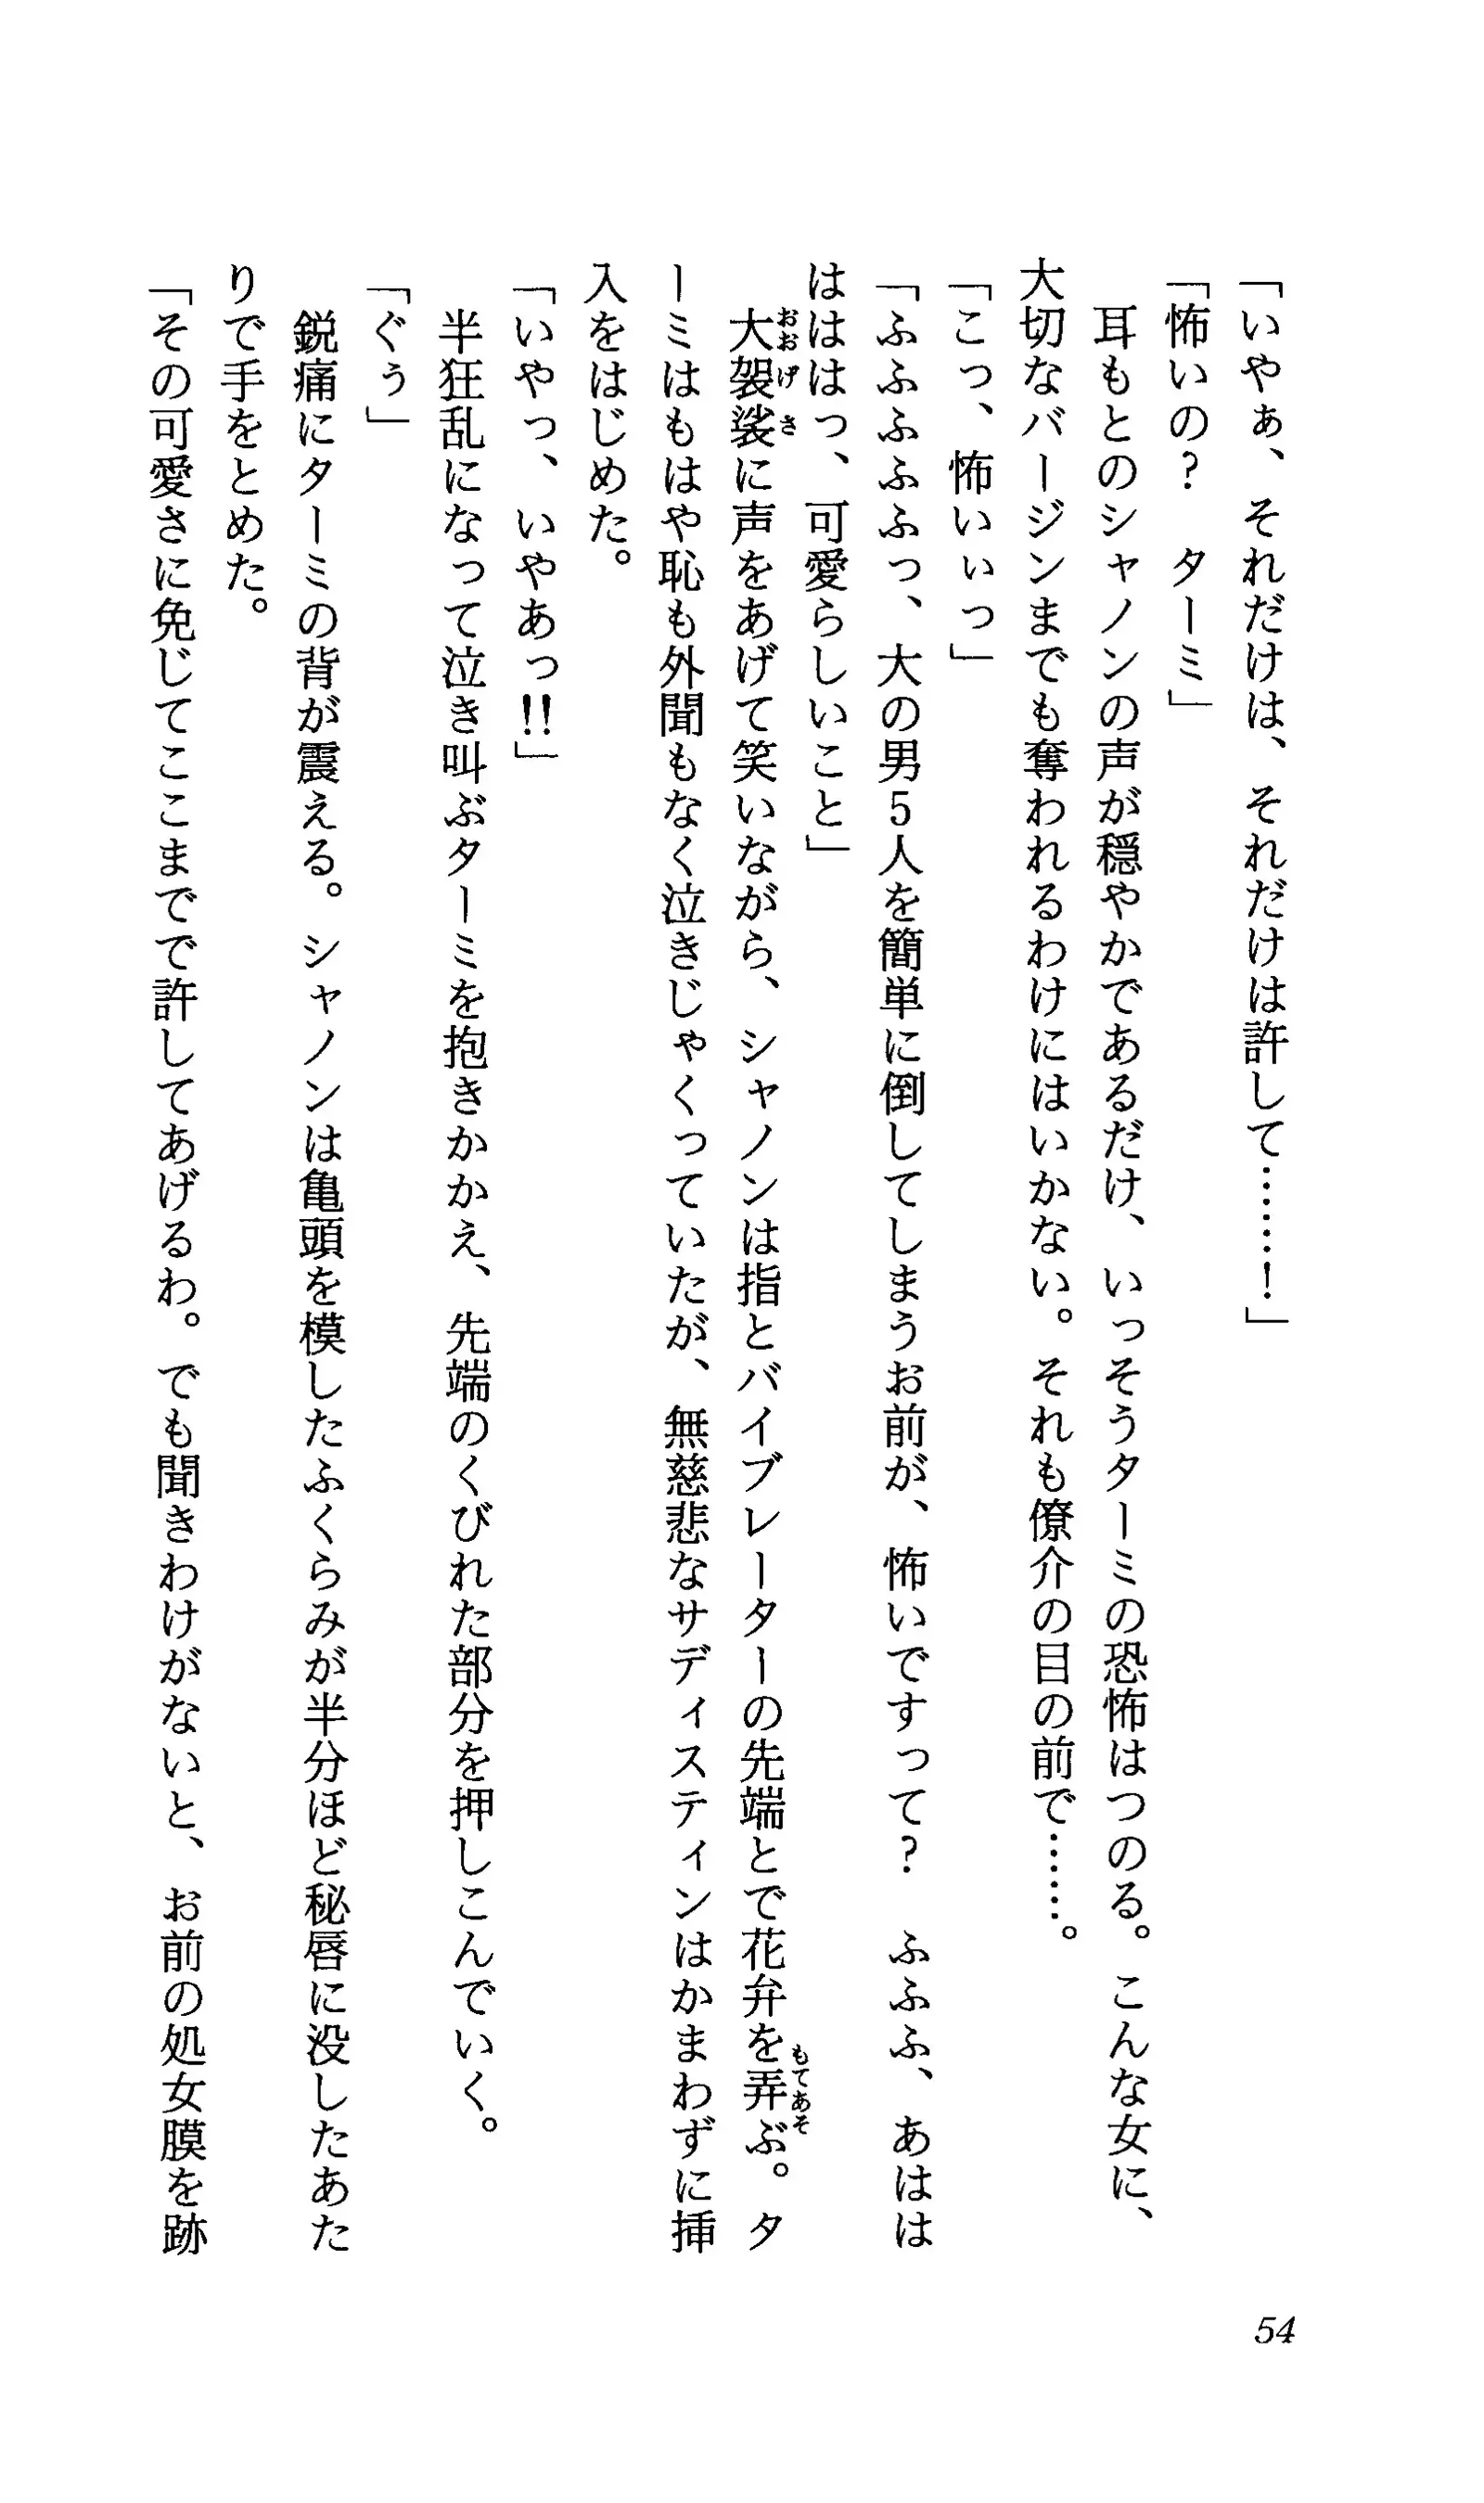 「いやぁ、それだけは、それだけは許して………！」
「怖いの？　ターミ」
耳もとのシャノンの声が穏やかであるだけ、いっそうターミの恐怖はつのる。こんな女に、
大切なバージンまでも奪われるわけにはいかない。それも僚介の目の前で……。
「こっ、怖いぃっ」
「ふふふふふっ、大の男5人を簡単に倒してしまうお前が、怖いですって？　ふふふ、あはは
はははっ、可愛らしいこと」
大袈裟に声をあげて笑いながら、シャノンは指とバイブレーターの先端とで花弁を弄ぶ。タ
ーミはもはや恥も外聞もなく泣きじゃくっていたが、無慈悲なサディスティンはかまわずに挿
入をはじめた。
「いやっ、いやあっ!!」
半狂乱になって泣き叫ぶターミを抱きかかえ、先端のくびれた部分を押しこんでいく。
「ぐぅ」
鋭痛にターミの背が震える。シャノンは亀頭を模したふくらみが半分ほど秘唇に没したあた
りで手をとめた。
「その可愛さに免じてここまでで許してあげるわ。でも聞きわけがないと、お前の処女膜を跡
54